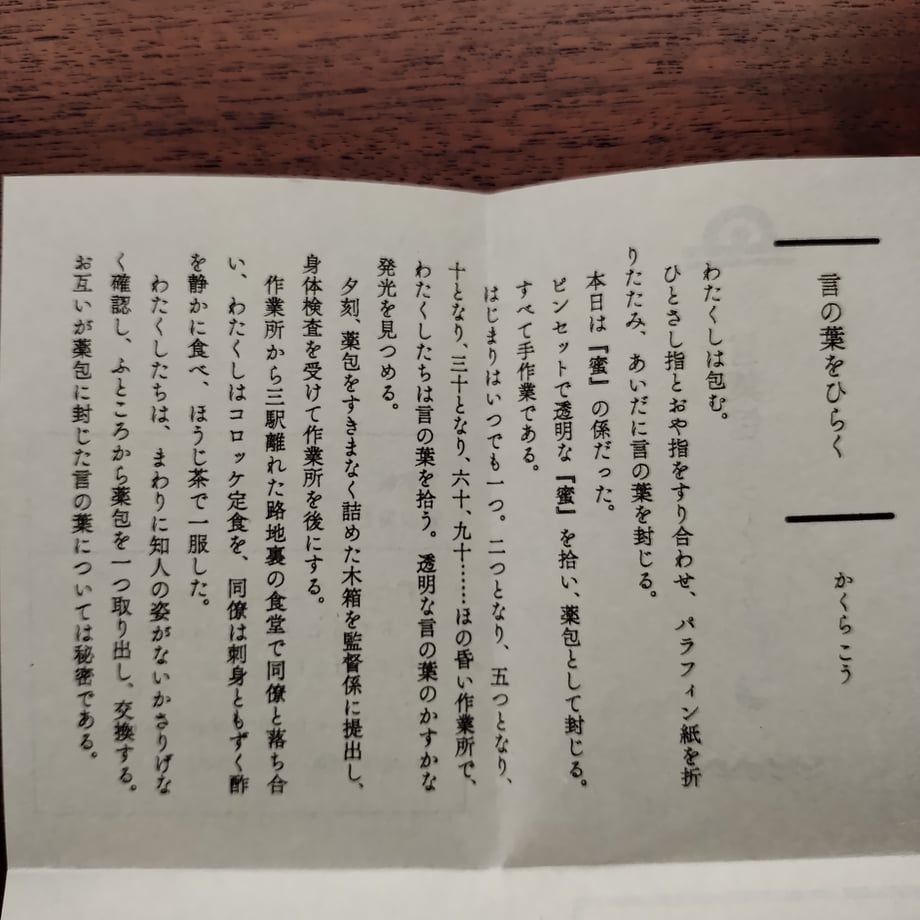 言の葉をひらく
かくら こう
わたくしは包む。
ひとさし指とおや指をすり合わせ、パラフィン紙を折
りたたみ、あいだに言の葉を封じる。
本日は『蜜』の係だった。
ピンセットで透明な『蜜』を拾い、薬包として封じる。
すべて手作業である。
はじまりはいつでも一つ。二つとなり、五つとなり、
十となり、三十となり、六十、九十……ほの昏い作業所で、
わたくしたちは言の葉を拾う。透明な言の葉のかすかな
発光を見つめる。
夕刻、薬包をすきまなく詰めた木箱を監督係に提出し、
身体検査を受けて作業所を後にする。
作業所から三駅離れた路地裏の食堂で同僚と落ち合
い、わたくしはコロッケ定食を、同僚は刺身ともずく酢
を静かに食べ、ほうじ茶で一服した。
わたくしたちは、まわりに知人の姿がないかさりげな
く確認し、ふところから薬包を一つ取り出し、交換する。
お互いが薬包に封じた言の葉については秘密である。